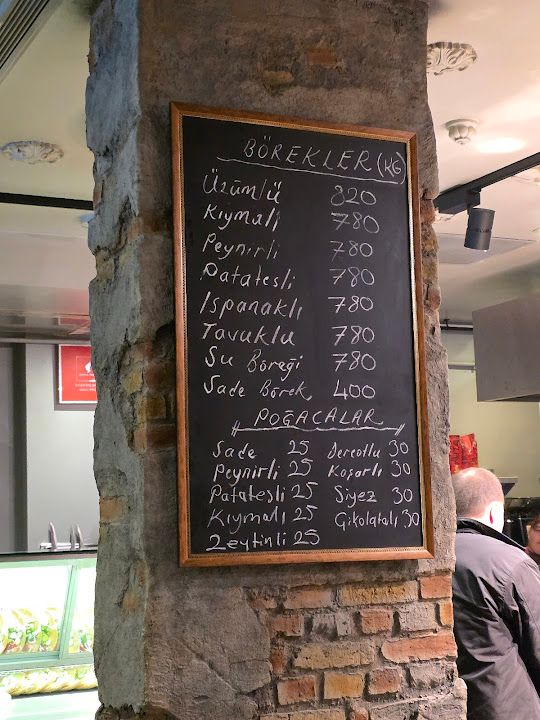 BÖREKLER (KG)
Üzümlü 820
Kıymalı 780
Peynirli 780
Patatesli 780
Ispanaklı 780
Tavuklu 780
Su Böreği 780
Sade Börek 400
POĞACALAR
Sade 25 Dereotlu 30
Peynirli 25 Kaşarlı 30
Patatesli 25 Siyez 30
Kıymalı 25 Çikolatalı 30
Zeytinli 25